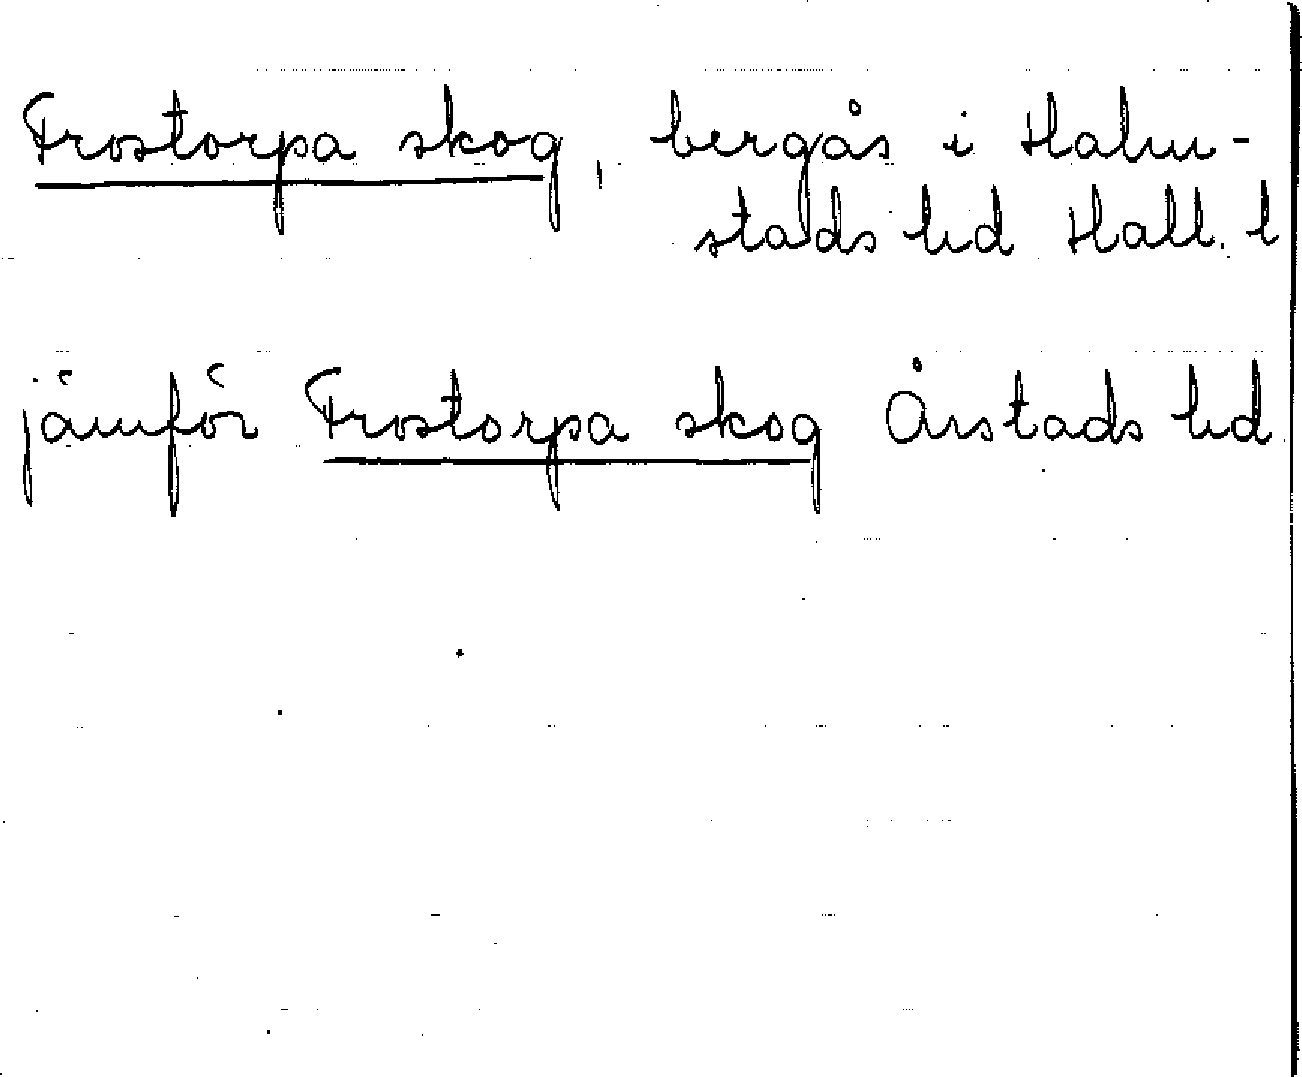 Frostorpa skog, bergås i Halm-
stads hd Hall. l
jämför Frostorpa skog Årstads hd